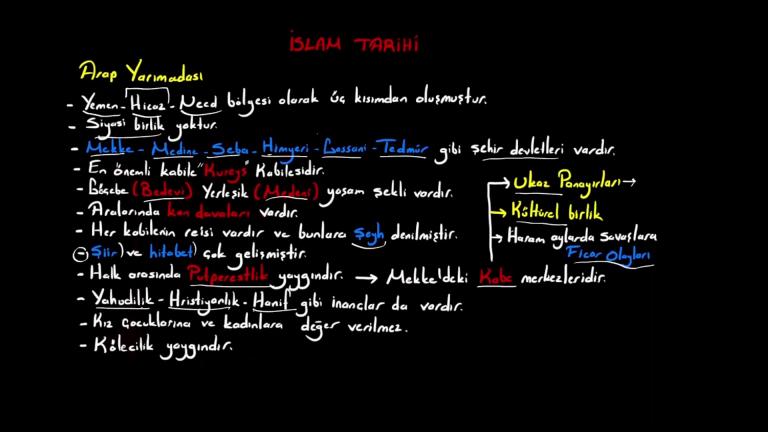 İSLAM TARİHİ
Arap Yarımadası
- Yemen - Hicaz - Necd bölgesi olarak üç kısımdan oluşmuştur.
- Siyasi birlik yoktur.
- Mekke - Medine - Seba - Himyeri - Gassani - Tedmür gibi şehir devletleri vardır.
- En önemli kabile "Kureyş" Kabilesidir.
- Göçebe (Bedevi) Yerleşik (Medeni) yaşam şekli vardır.
- Aralarında kan davaları vardır.
- Her kabilenin reisi vardır ve bunlara Şeyh denilmiştir.
- Şiir) ve hitabet) çok gelişmiştir.
→ Ukaz Panayırları →
→ Kültürel birlik
→ Haram aylarda savaşlara
Ficar Olayları
- Halk arasında Putperestlik yaygındır. → Mekke'deki Kabe merkezleridir.
- Yahudilik - Hristiyanlık - Hanif gibi inançlar da vardır.
- Kız çocuklarına ve kadınlara değer verilmez.
- Kölecilik yaygındır.